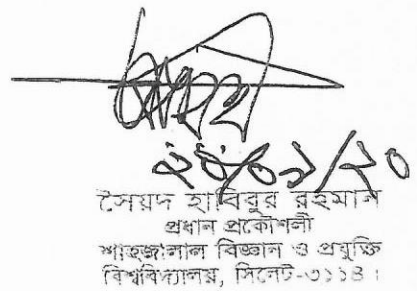 সৈয়দ হাবিবুর রহমান
প্রধান প্রকৌশলী
শাহজালাল বিজ্ঞান ও প্রযুক্তি
বিশ্ববিদ্যালয়, সিলেট-৩১১৪।